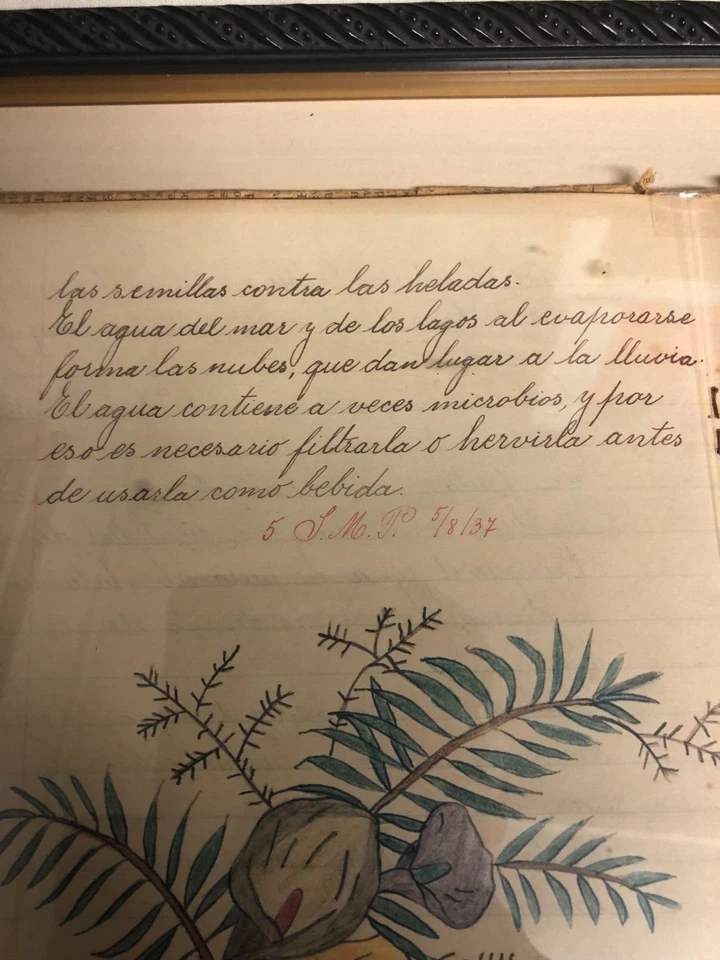 las semillas contra las heladas.
El agua del mar y de los lagos al evaporarse
forma las nubes, que dan lugar a la lluvia.
El agua contiene a veces microbios, y por
eso es necesario filtrarla o hervirla antes
de usarla como bebida.
5 S.M.P. 5/8/37